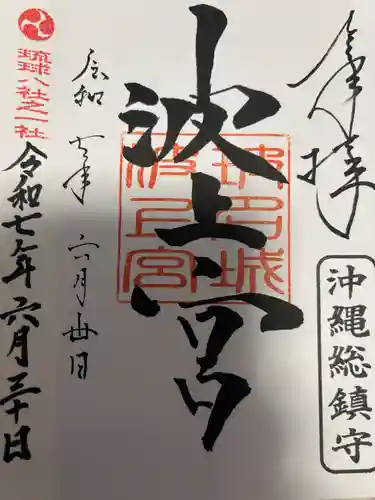 奉拝
沖縄総鎮守
波上宮
波上宮
令和 七年 六月丗日
琉球八社之一社
令和七年六月三十日